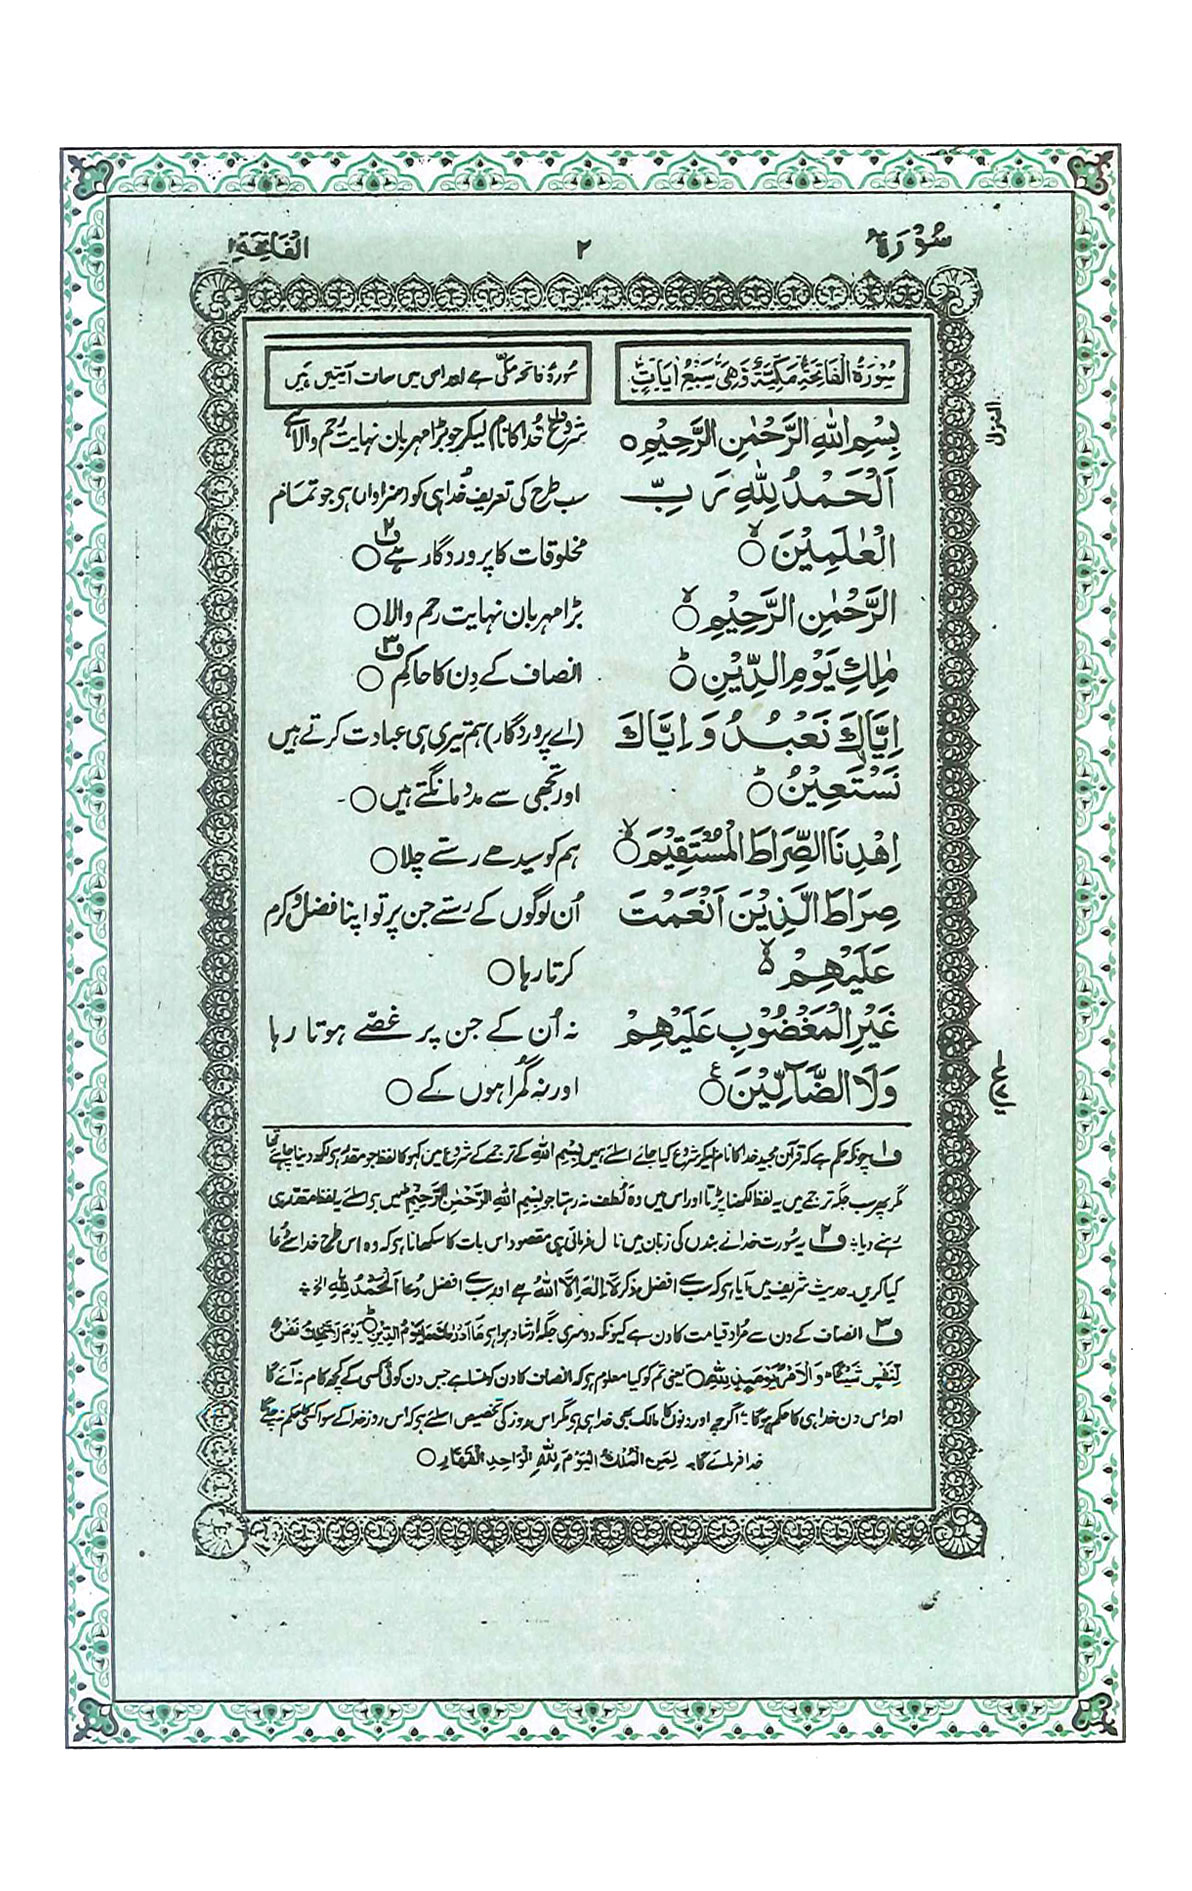 سُوْرَةُ ۲ الفَاتِحَة ۱
سُوْرَةُ الْفَاتِحَةِ مَكِّيَّةٌ وَّهِيَ سَبْعُ اٰيَاتٍ
سورۂ فاتحہ مکّی ہے اور اس میں سات آیتیں ہیں
بِسْمِ اللهِ الرَّحْمٰنِ الرَّحِيْمِ ○
شروع ف۱ خُدا کا نام لیکر جو بڑا مہربان نہایت رحم والا ہے
اَلْحَمْدُ لِلّٰهِ رَبِّ
سب طرح کی تعریف خُدا ہی کو (سزاوار) ہی جو تمام
الْعٰلَمِيْنَ ○ۙ
مخلوقات کا پروردگار ہے ف۲ ○
الرَّحْمٰنِ الرَّحِيْمِ ○ۙ
بڑا مہربان نہایت رحم والا ○
مٰلِكِ يَوْمِ الدِّيْنِ ○ؕ
انصاف کے دِن کا حاکم ف۳ ○
اِيَّاكَ نَعْبُدُ وَ اِيَّاكَ
(اے پروردگار) ہم تیری ہی عبادت کرتے ہیں
نَسْتَعِيْنُ ○ؕ
اور تجھی سے مدد مانگتے ہیں ○
اِهْدِنَا الصِّرَاطَ الْمُسْتَقِيْمَ ○ۙ
ہم کو سیدھے رستے چلا ○
صِرَاطَ الَّذِيْنَ اَنْعَمْتَ
اُن لوگوں کے رستے جن پر تو اپنا فضل و کرم
عَلَيْهِمْ ۙ۵
کرتا رہا ○
غَيْرِ الْمَغْضُوْبِ عَلَيْهِمْ
نہ اُن کے جن پر غصّے ہوتا رہا
وَلَا الضَّآلِّيْنَ ○ع
اور نہ گمراہوں کے ○
المنزل
ف۱ چونکہ حکم ہے کہ قرآن مجید خدا کا نام لیکر شروع کیا جائے اسلئے ہمیں بِسْمِ اللهِ کے ترجمے کے شروع میں کہو کا لفظ جو مقدر ہی لکھ دینا چاہئے تھا
مگر پھر سب جگہ ترجمے میں یہ لفظ لکھنا پڑتا اور اس میں وہ لُطف نہ رہتا جو بِسْمِ اللهِ الرَّحْمٰنِ الرَّحِيْمِ میں ہی اسلئے یہ لفظ مقدر ہی
رہنے دیا ف۲ یہ سُورت خدا نے بندوں کی زبان میں نازل فرمائی ہی مقصود اس بات کا سکھانا ہی کہ وہ اس طرح خدا سے دُعا
کیا کریں۔ حدیث شریف میں آیا ہی کہ سب سے افضل ذکر لَآ اِلٰهَ اِلَّا اللهُ ہے اور سب سے افضل دُعا اَلْحَمْدُ لِلّٰهِ الخ
ف۳ انصاف کے دن سے مُراد قیامت کا دن ہے کیونکہ دوسری جگہ ارشاد ہوا ہی مَآ اَدْرٰىكَ مَا يَوْمُ الدِّيْنِ ○ؕ يَوْمَ لَا تَمْلِكُ نَفْسٌ
لِّنَفْسٍ شَيْئًا ؕ وَالْاَمْرُ يَوْمَئِذٍ لِّلّٰهِ ○ یعنی تم کو کیا معلوم ہی کہ انصاف کا دن کونسا ہے جس دن کوئی کسی کے کچھ کام نہ آئے گا
اور اس دن خدا ہی کا حکم ہوگا اگرچہ اور دنوں کا مالک بھی خدا ہی ہی مگر اس روز کی تخصیص اسلئے ہی کہ اس روز خدا کے سوا کسی کا حکم نہ چلے گا
خدا فرمائے گا۔ لِمَنِ الْمُلْكُ الْيَوْمَ لِلّٰهِ الْوَاحِدِ الْقَهَّارِ ○